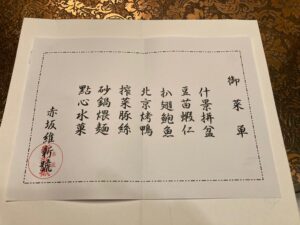 御菜單
什景拼盆
豆苗蝦仁
扒翅鮑魚
北京烤鴨
搾菜豚絲
砂鍋煨麺
點心水菓
赤坂維新號